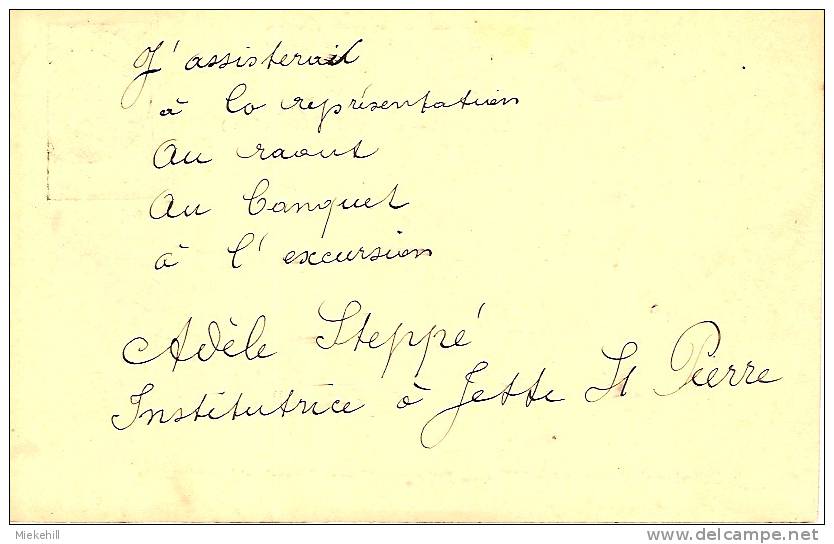 J'assisterai
à la représentation
Au raout
Au banquet
à l'excursion
Adèle Steppé
Institutrice à Jette St Pierre
Miekehill
delcampe.net